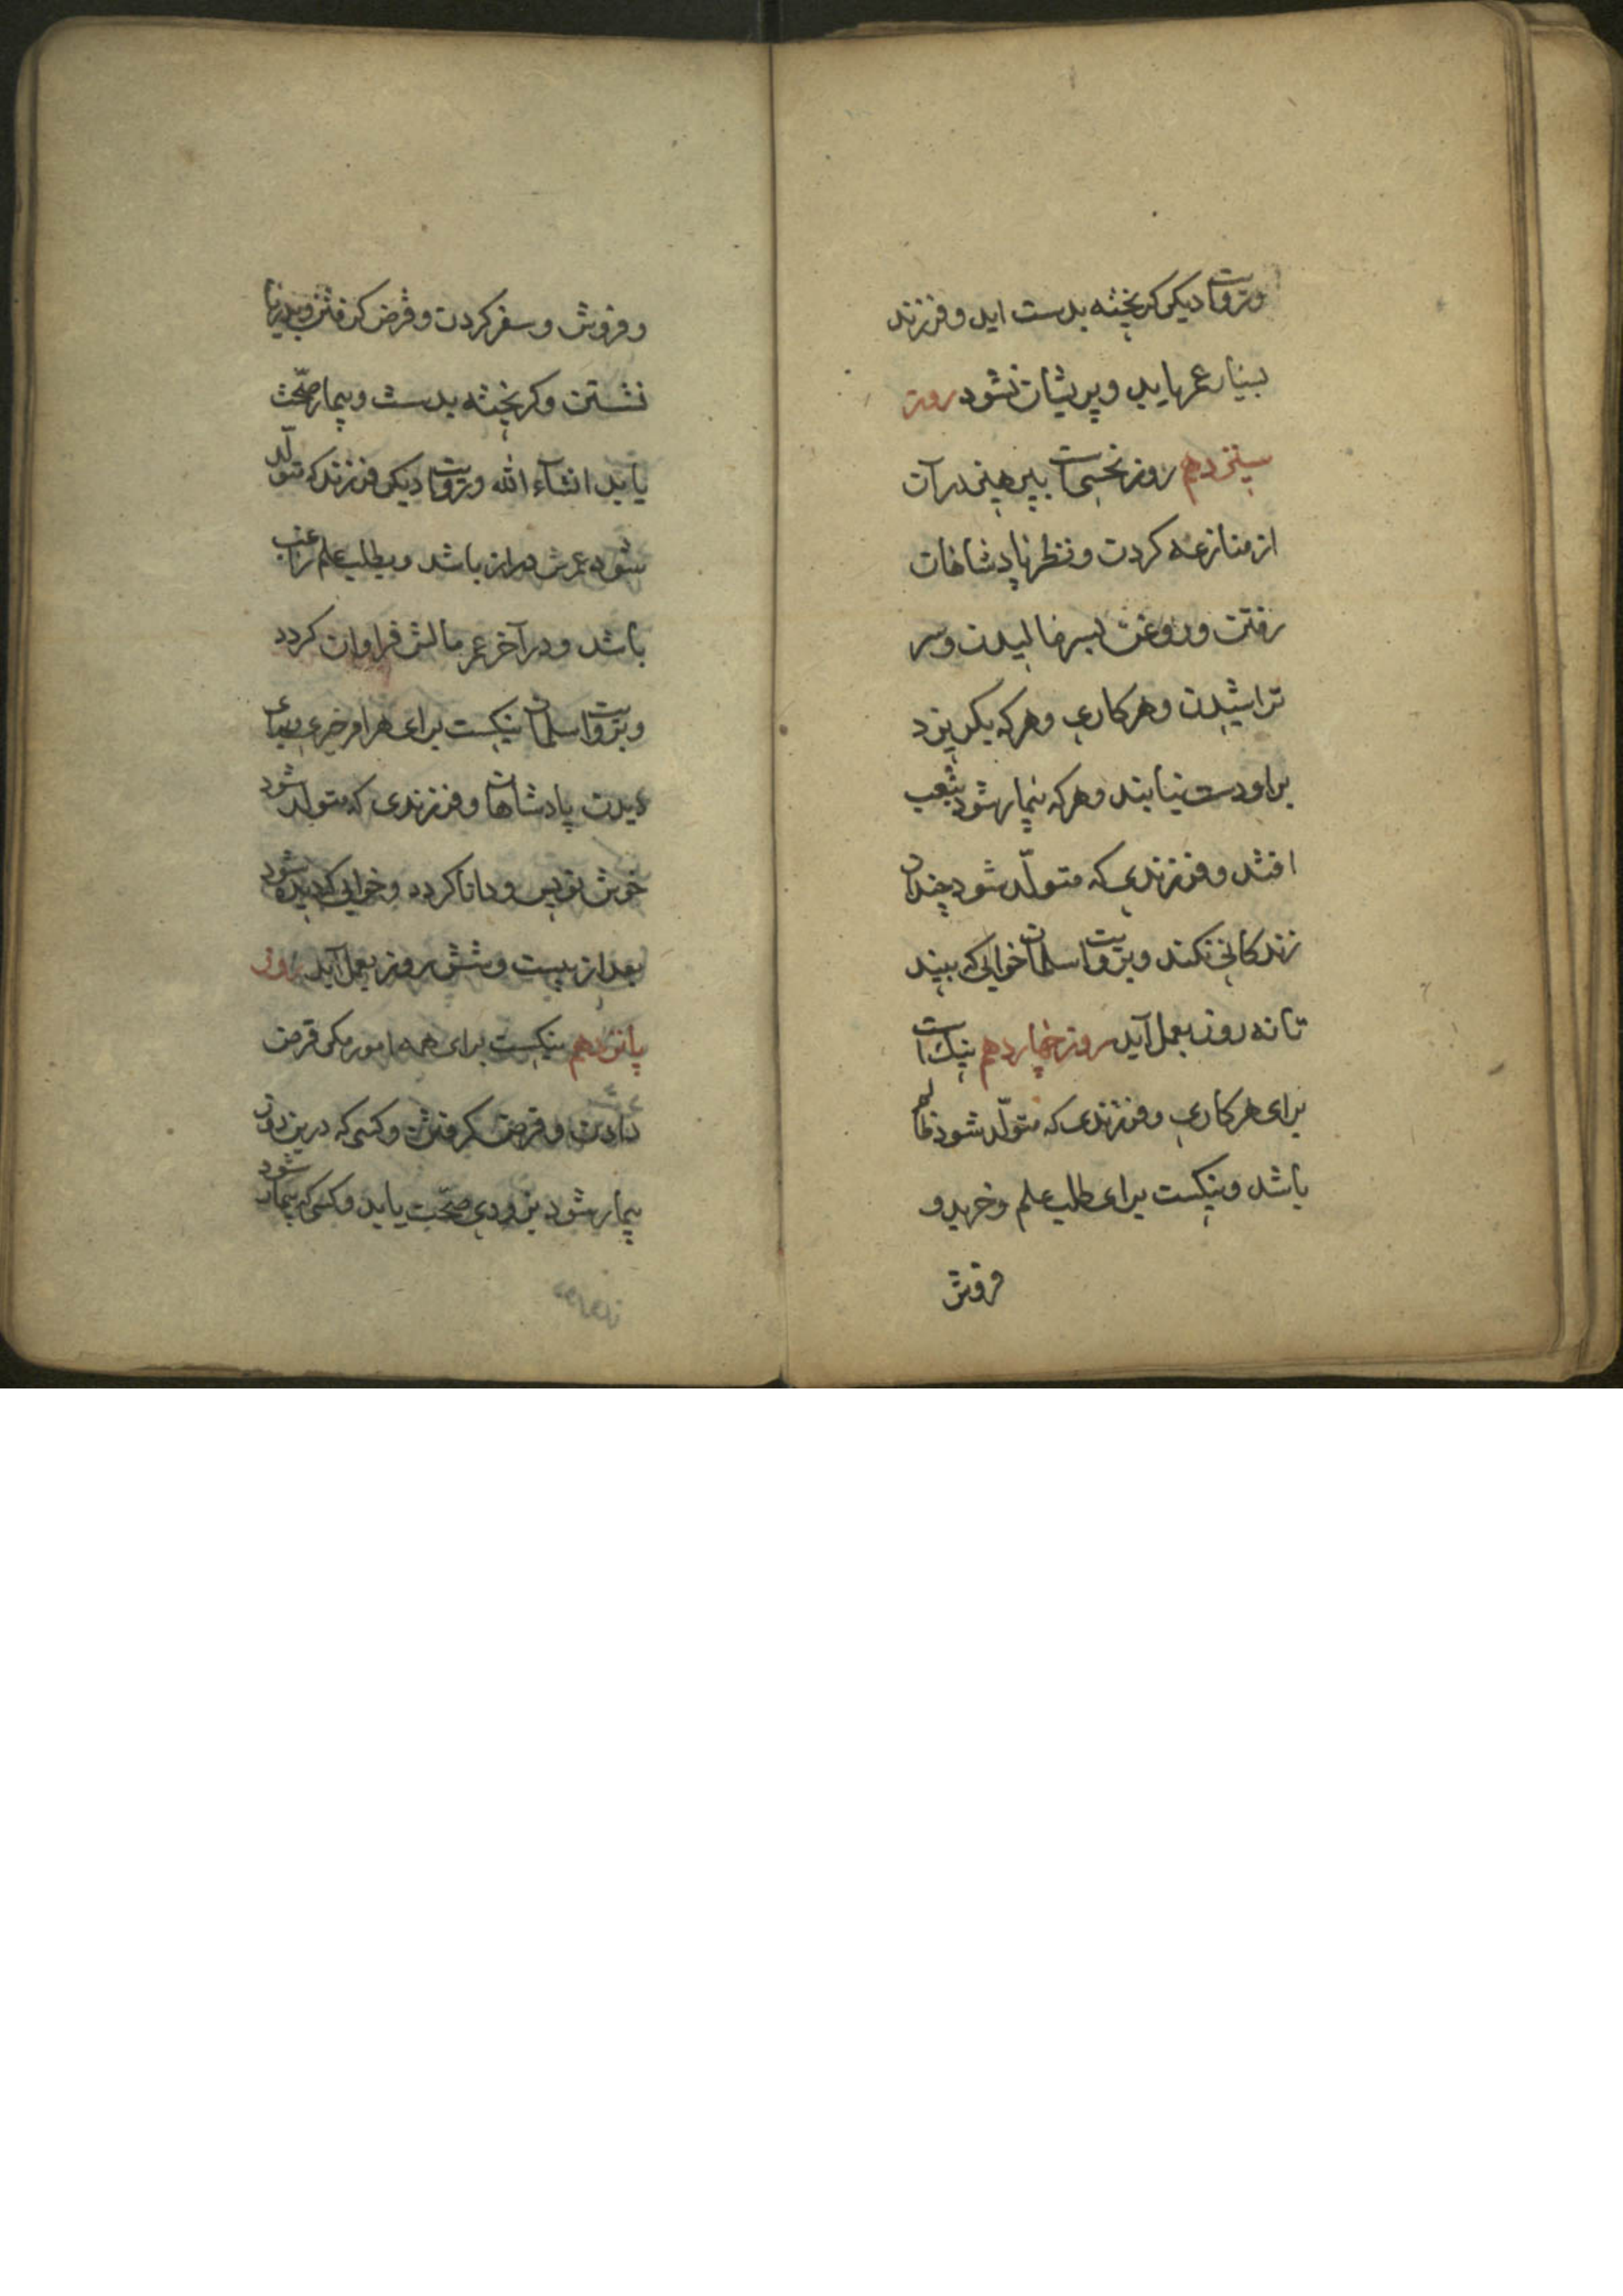 وبروایت دیکر کریخته بدست اید و فرزند
بسیار عمر یابد و پریشان نشود روز
سیزدهم روز نحسی است بپرهیز در آن
از منازعه کردن و نظر پادشاهان
رفتن و روغن بسر مالیدن و سر
تراشیدن و هر کاری و هر که بکریزد
براو دست نیابند و هر که بیمار شود بتعب
افتد و فرزندی که متولّد شود چندان
زندکانی نکند و بروایت سلمان خوابی که بیند
تا نه روز بعمل آید روز چهاردهم نیک است
برای هر کاری و فرزندی که متولّد شود ظالم
باشد و نیکست برای طلب علم و خرید و
فروش
و فروش و سفر کردن و قرض کرفتن و بدریا
نشستن و کریخته بدست و بیمار صحّت
یابد انشاء الله و بروایت دیکر فرزند که متولّد
شود عمرش دراز باشد و بطلب علم راغب
باشد و در آخر عمر مالش فراوان کردد
و بروایت سلمان نیکست برای هر امر خیری و برای
دیدن پادشاهان و فرزندی که متولّد شود
خوش نویس و دانا کردد و خوابی که دیده شود
بعد از بیست و شش روز بعمل آید روز
پانزدهم نیکست برای همه امور مکر قرض
دادن و قرض کرفتن و کسی که درین روز
بیمار شود بزودی صحّت یابد و کسی که بیمار شود